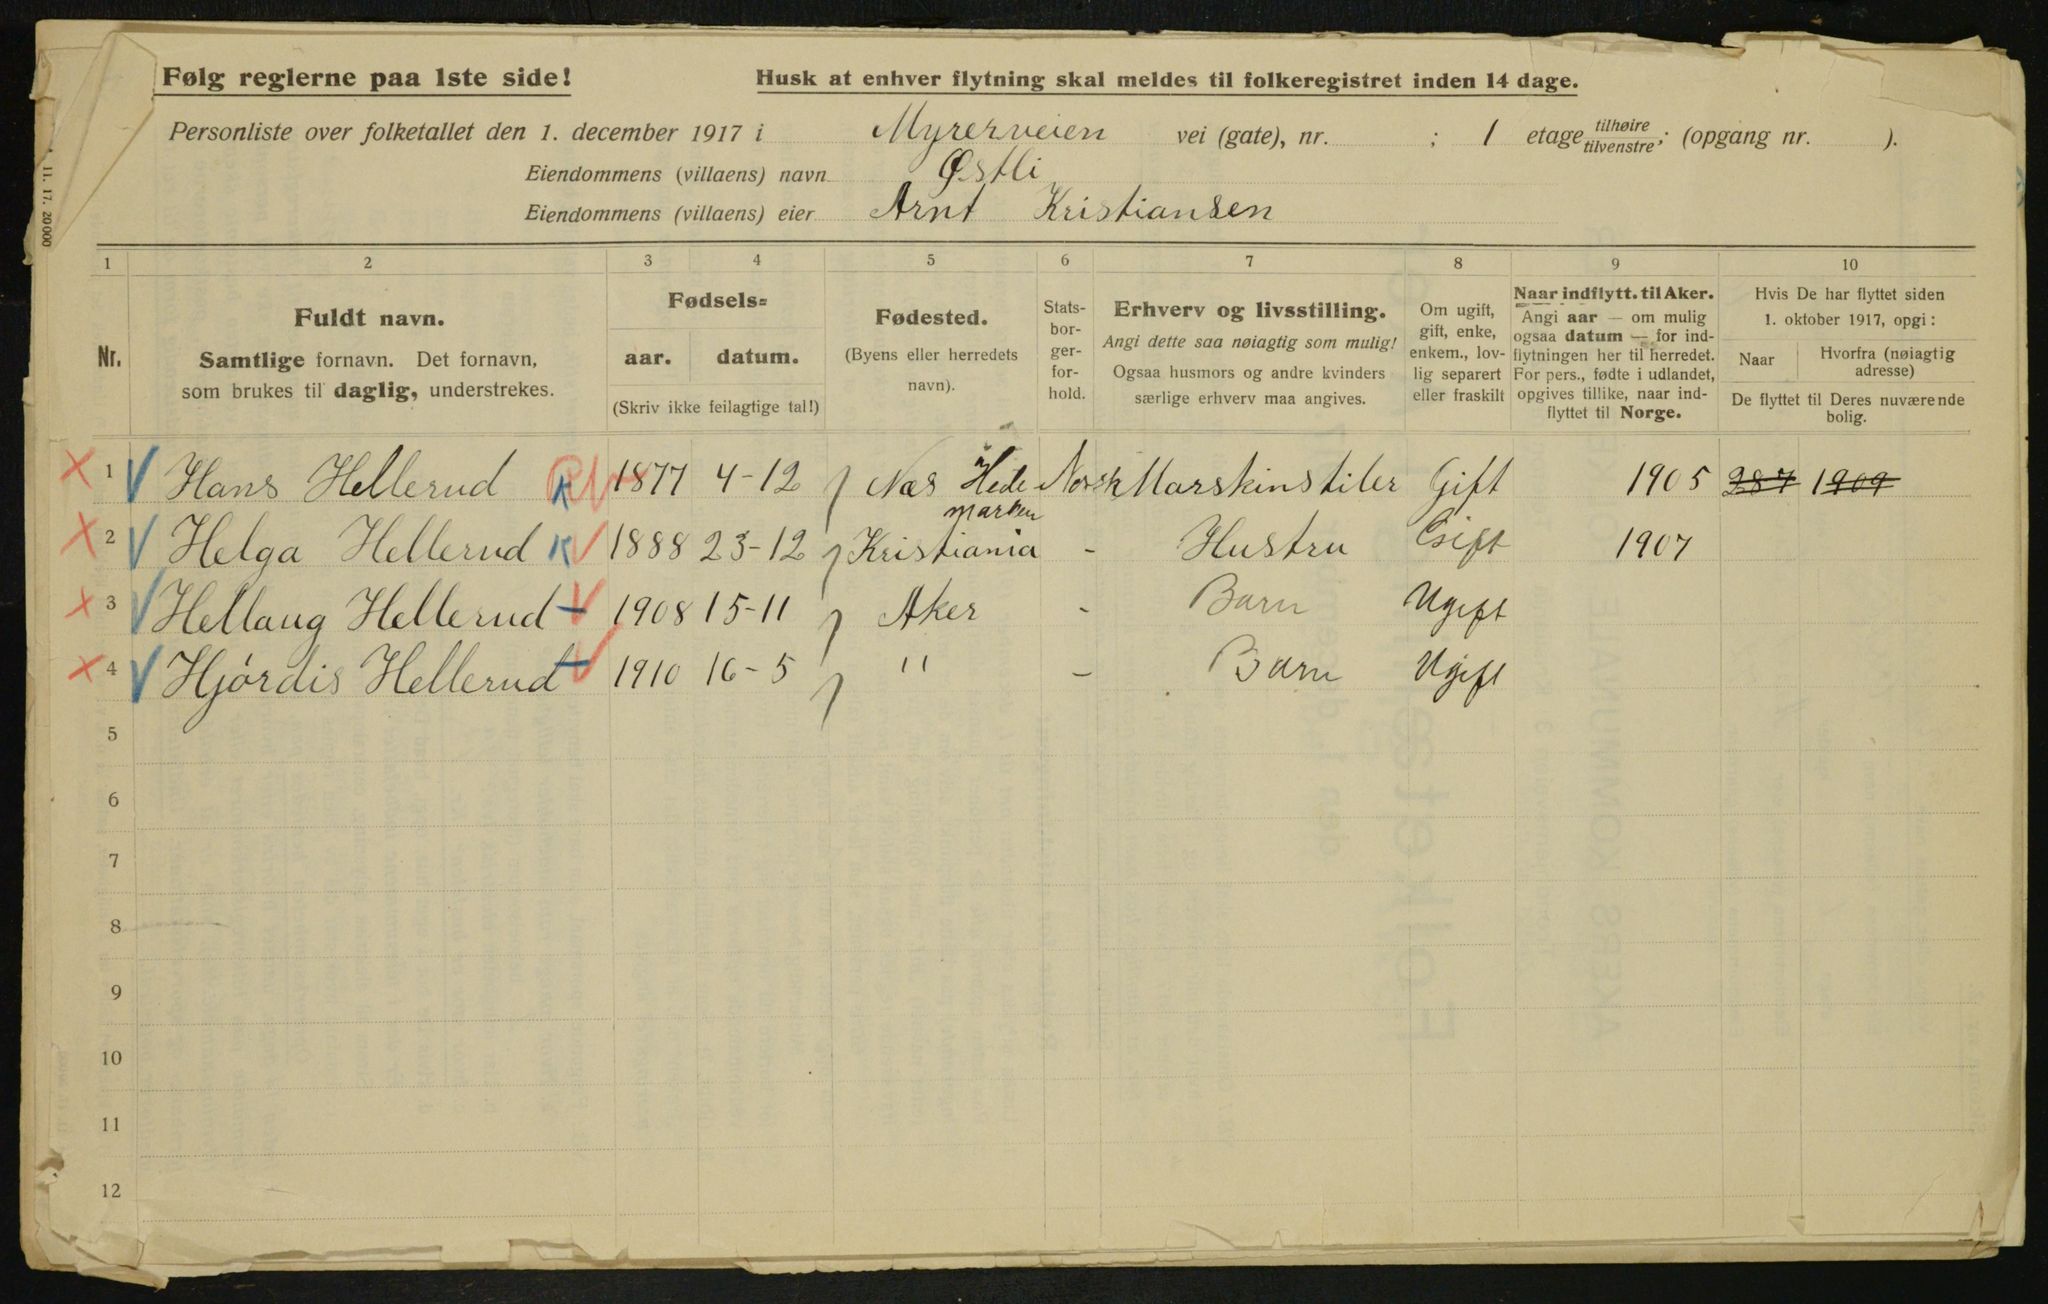 Følg reglerne paa 1ste side! Husk at enhver flytning skal meldes til folkeregistret inden 14 dage.
Personliste over folketallet den 1. december 1917 i Myrerveien vei (gate), nr. ; 1 etage tilhøire tilvenstre; (opgang nr. ).
Eiendommens (villaens) navn Østli
Eiendommens (villaens) eier Arnt Kristiansen
11. 17. 20000
1 2 3 4 5 6 7 8 9 10
Nr.
Fuldt navn.
Samtlige fornavn. Det fornavn,
som brukes til daglig, understrekes.
Fødsels=
aar. datum.
(Skriv ikke feilagtige tal!)
Fødested.
(Byens eller herredets
navn).
Stats-
bor-
ger-
for-
hold.
Erhverv og livsstilling.
Angi dette saa nøiagtig som mulig!
Ogsaa husmors og andre kvinders
særlige erhverv maa angives.
Om ugift,
gift, enke,
enkem., lov-
lig separert
eller fraskilt
Naar indflytt. til Aker.
Angi aar — om mulig
ogsaa datum — for ind-
flytningen her til herredet.
For pers., fødte i udlandet,
opgives tillike, naar ind-
flyttet til Norge.
Hvis De har flyttet siden
1. oktober 1917, opgi:
Naar Hvorfra (nøiagtig
adresse)
De flyttet til Deres nuværende
bolig.
1 Hans Hellerud 1877 4-12 Næs Hede Norsk Marskinstiler Gift 1905 287 1909
marken
2 Helga Hellerud K 1888 23-12 Kristiania - Hustru Gift 1907
3 Hellaug Hellerud 1908 15-11 Aker - Barn Ugift
4 Hjórdis Hellerud 1910 16-5 " - Barn Ugift
5
6
7
8
9
10
11
12